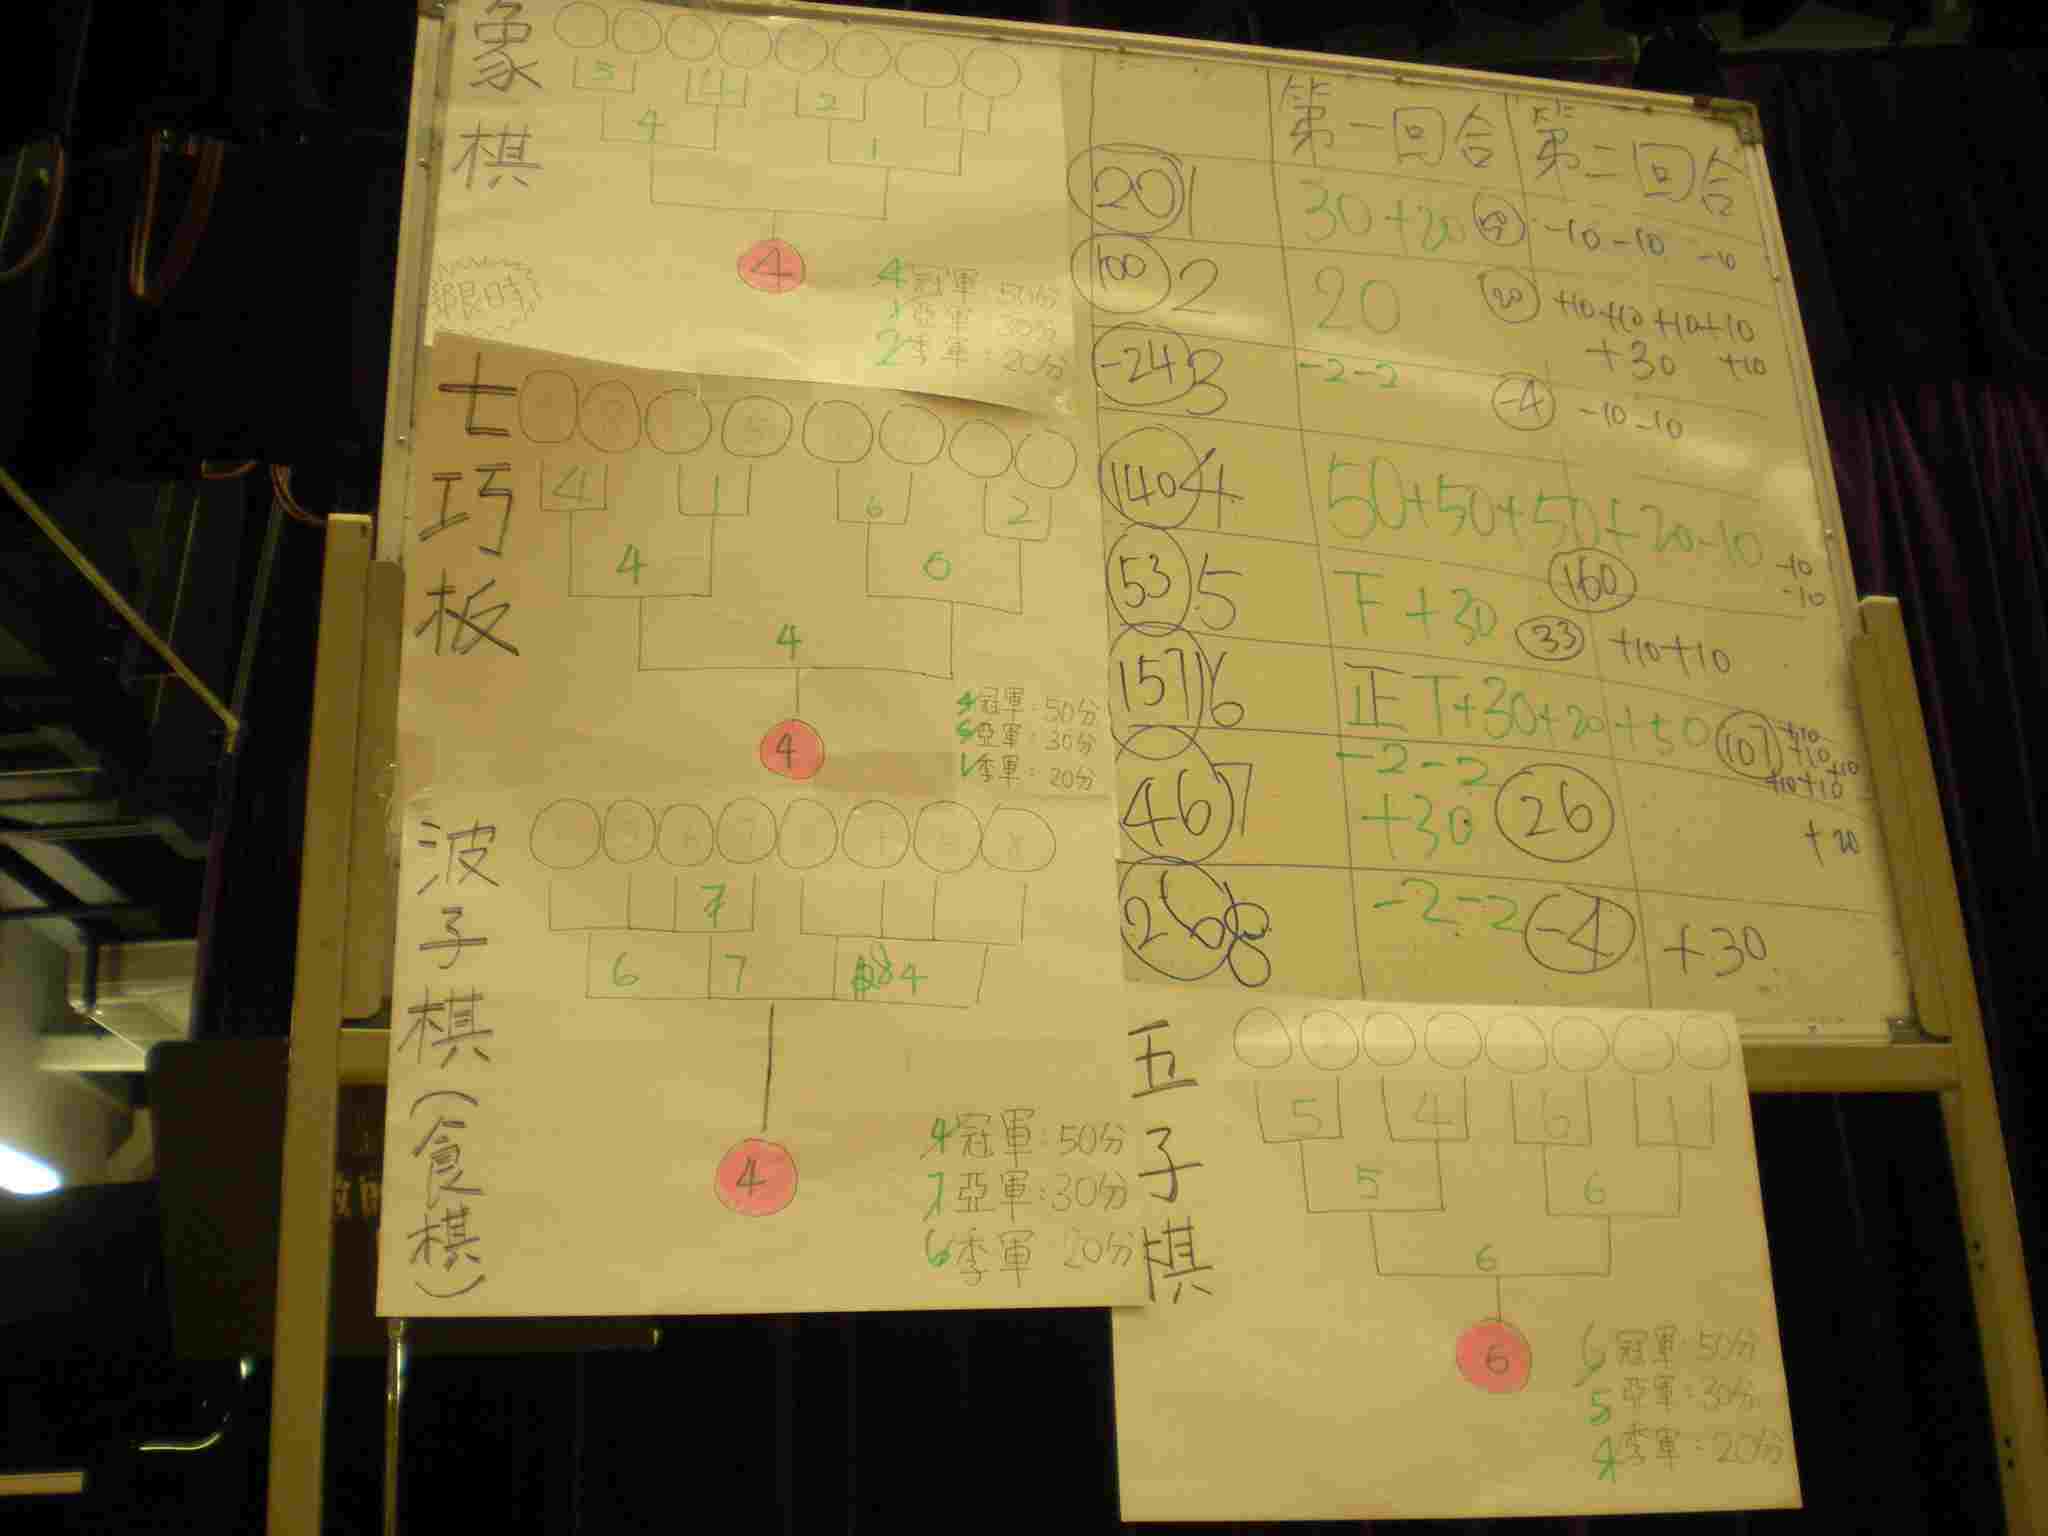 象棋
5 4 2 1
4 1
4
限時
4冠軍:50分
1亞軍:30分
2季軍:20分
七巧板
4 1 6 2
4 6
4
4
4冠軍:50分
亞軍:30分
1季軍:20分
波子棋(食棋)
7
6 7 4
4
4冠軍:50分
7亞軍:30分
6季軍:20分
第一回合 第二回合
20 1 30+20 -10-10 -10
100 2 20 20 +10+10+10+10
+30 +10
-24 3 -2-2 -4 -10-10
140 4 50+50+50+20-10 -10
160 -10
53 5 下+30 33 +10+10
157 6 正T+30+20+50 107 +10
+10 +10
+10+10
46 7 -2-2
+30 26 +20
26 8 -2-2 -4 +30
五子棋
5 4 6 1
5 6
6
6
6冠軍:50分
5亞軍:30分
4季軍:20分